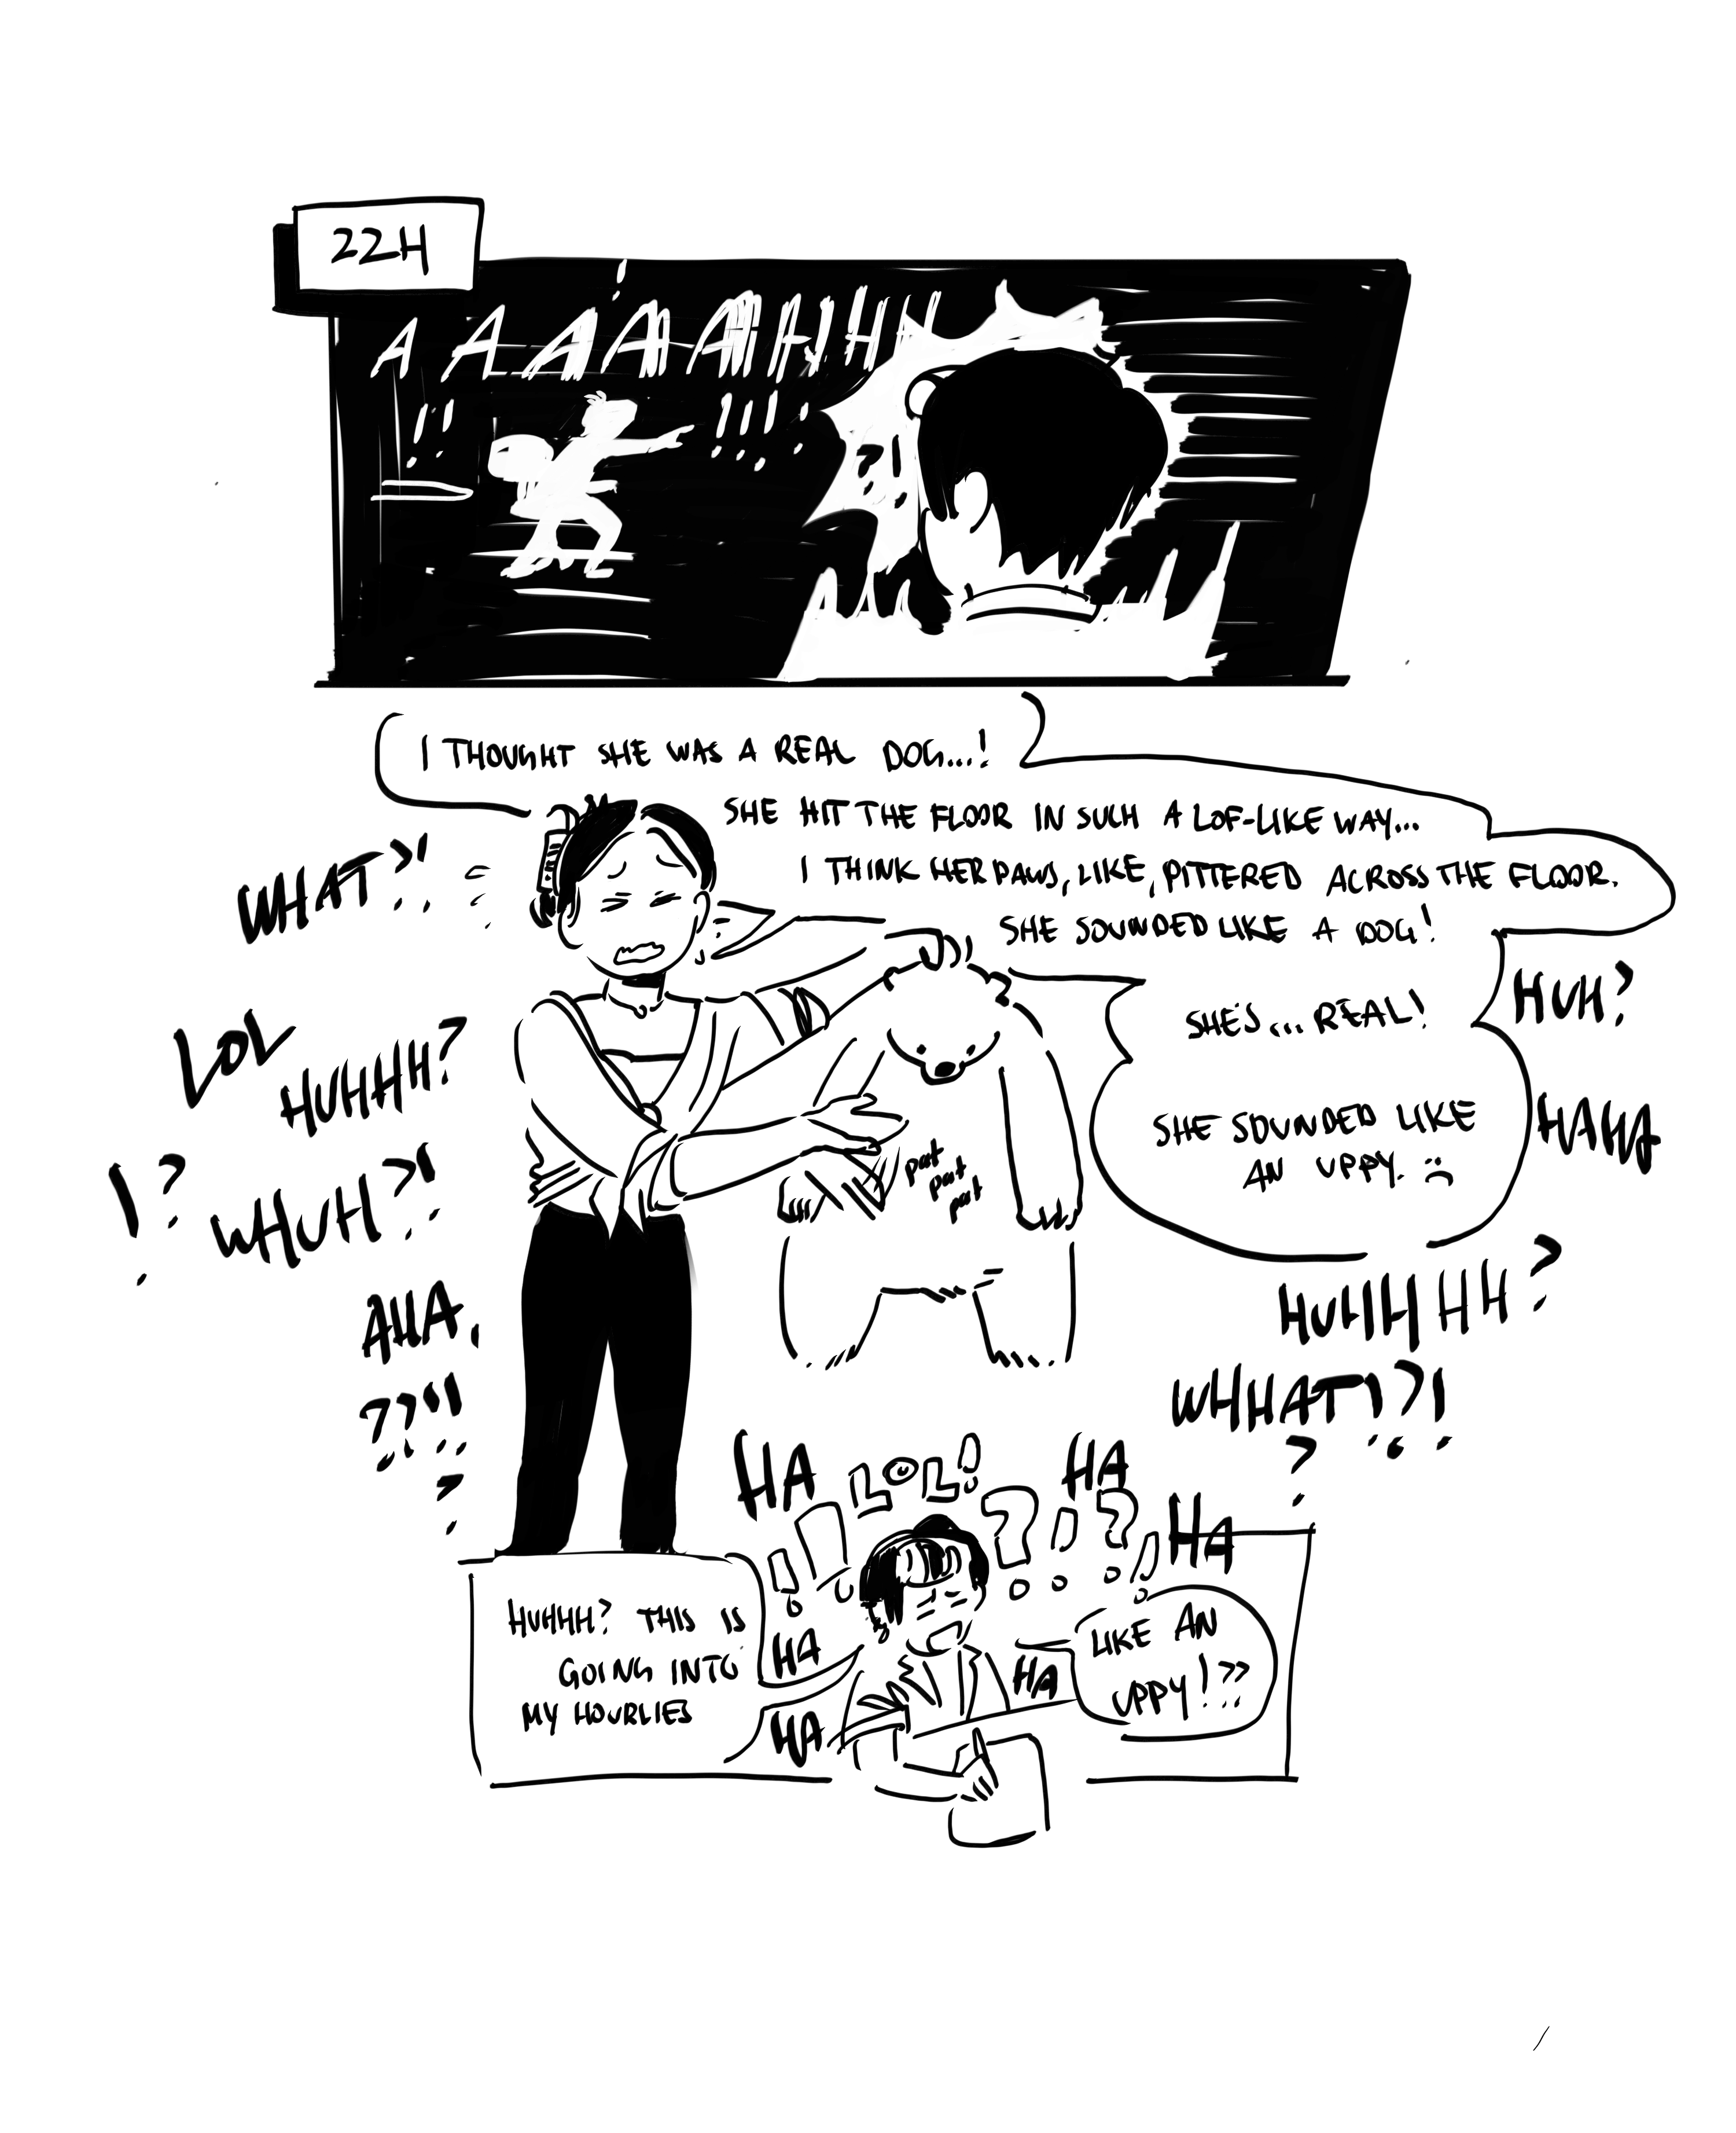 22H
A A A A A A H H H H
!! !!!!
?!
I THOUGHT SHE WAS A REAL DOG...!
SHE HIT THE FLOOR IN SUCH A LOF-LIKE WAY...
I THINK HER PAWS, LIKE, PITTERED ACROSS THE FLOOR.
SHE SOUNDED LIKE A DOG!
WHAT?!
LOL
HUHHH?
!?
WHUH?!
AHA.
??!!
?
pat
pat
pat
SHE'S...REAL!
SHE SOUNDED LIKE
AN UPPY. :(
HUH?
HAHA
HUHHHHH?
WHHAT!?!
?
HA LOL! HA
!! ?!?! HA
HUHHH? THIS IS
GOING INTO
MY HOURLIES
HA
HA
HA
LIKE AN
UPPY!??